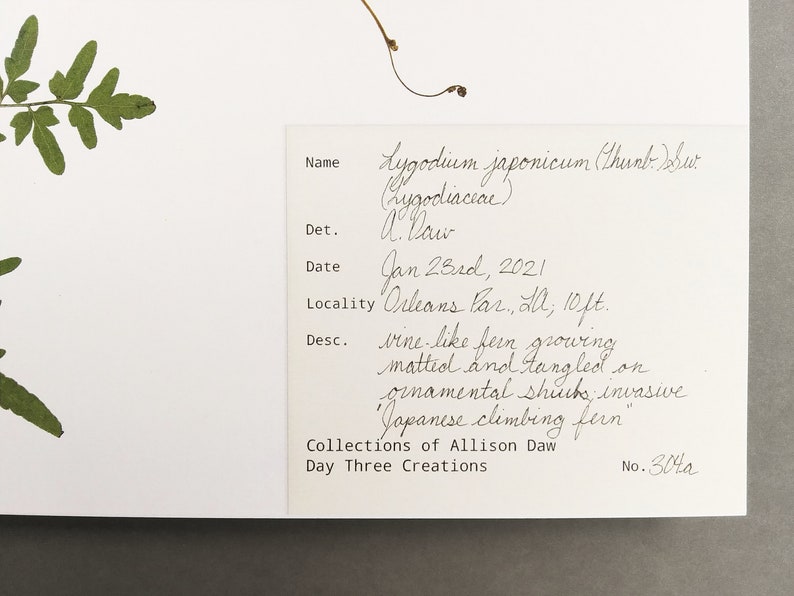 Name Lygodium japonicum (Thunb.) Sw.
(Lygodiaceae)
Det. A. Daw
Date Jan 23rd, 2021
Locality Orleans Par., LA; 10ft.
Desc. vine-like fern growing
matted and tangled on
ornamental shrubs; invasive
"Japanese climbing fern"
Collections of Allison Daw
Day Three Creations No. 304a